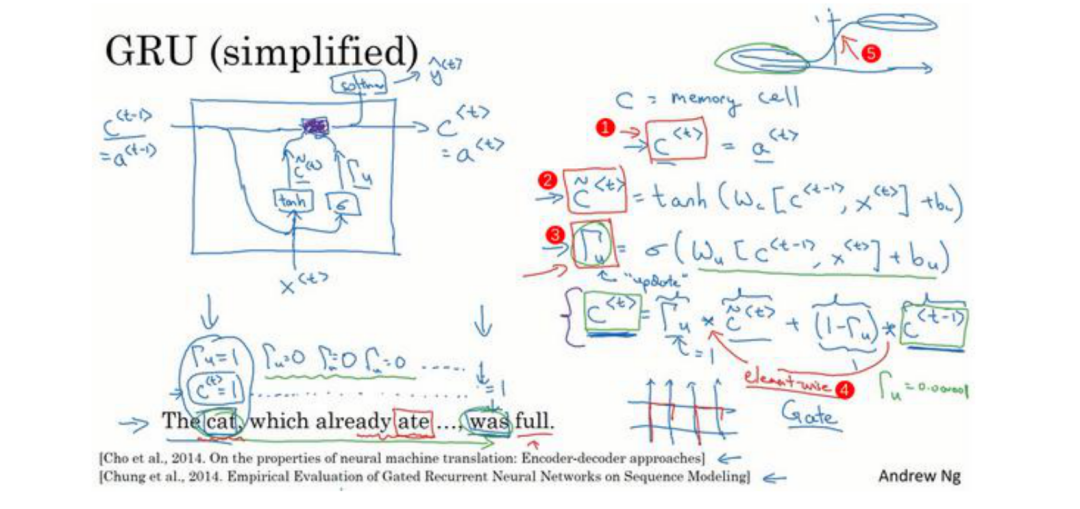 GRU (simplified)
softmax → ŷ<t>
c<t-1>
= a<t-1>
c<t>
= a<t>
c̃<t>
Γu
tanh
σ
x<t>
5
C = memory cell
1 → c<t> = a<t>
2 → c̃<t> = tanh(Wc[c<t-1>, x<t>] + bc)
3 → Γu = σ(Wu[c<t-1>, x<t>] + bu)
"update"
c<t> = Γu * c̃<t> + (1-Γu) * c<t-1>
= 1
element-wise 4
Γu = 0.000001
Gate
Γu=1 Γu=0 Γu=0 Γu=0 .....
c<t>=1 ..........
= 1
→ The cat, which already ate ..., was full.
[Cho et al., 2014. On the properties of neural machine translation: Encoder-decoder approaches] ←
[Chung et al., 2014. Empirical Evaluation of Gated Recurrent Neural Networks on Sequence Modeling] ←
Andrew Ng